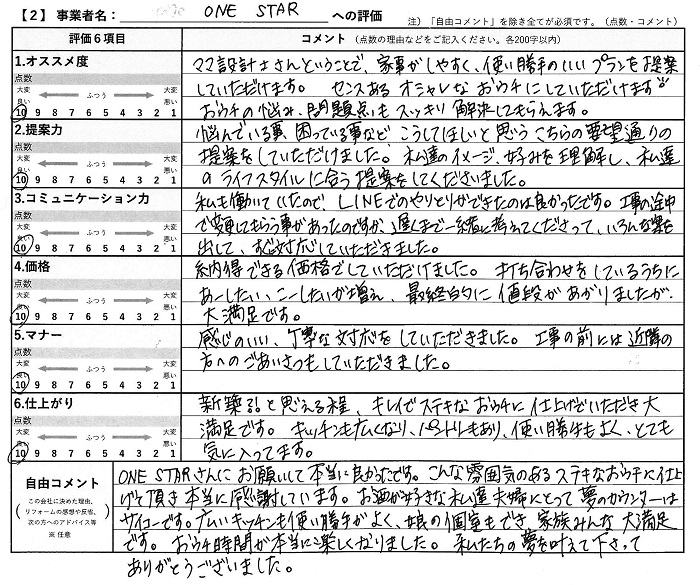 【2】 事業者名： ONE STAR への評価
注）「自由コメント」を除き全てが必須です。（点数・コメント）
評価6項目 コメント（点数の理由などをご記入ください。各200字以内）
1.オススメ度
点数
大変良い ← ふつう → 大変悪い
10 9 8 7 6 5 4 3 2 1
ママ設計士さんということで、家事がしやすく、使い勝手のいいプランを提案
していただけます。 センスある オシャレな おウチにしていただけます
おウチの悩み、問題点も スッキリ 解決してもらえます。
2.提案力
点数
大変良い ← ふつう → 大変悪い
10 9 8 7 6 5 4 3 2 1
悩んでいる事、困っている事など、こうしてほしいと思う こちらの要望通りの
提案をしていただけました。私達のイメージ、好みを理解し、私達
の ライフスタイルに合う提案をしてくださいました。
3.コミュニケーション力
点数
大変良い ← ふつう → 大変悪い
10 9 8 7 6 5 4 3 2 1
私も働いていたので、LINEでのやりとりができたのは良かったです。工事の途中
で変更してもらう事があったのですが、遅くまで一緒に考えてくださって、いろんな案を
出して、すぐ対応していただきました。
4.価格
点数
大変良い ← ふつう → 大変悪い
10 9 8 7 6 5 4 3 2 1
納得できる価格でしていただけました。 打ち合わせをしているうちに
あーしたい、こーしたいが増え、最終的に値段があがりましたが、
大満足です。
5.マナー
点数
大変良い ← ふつう → 大変悪い
10 9 8 7 6 5 4 3 2 1
感じのいい、丁寧な対応をしていただきました。工事の前には近隣の
方へのごあいさつもしていただきました。
6.仕上がり
点数
大変良い ← ふつう → 大変悪い
10 9 8 7 6 5 4 3 2 1
新築?と思える程、キレイでステキなおウチに仕上げていただき大
満足です。 キッチンも広くなり、パントリーもあり、使い勝手もよく、とても
気に入ってます。
自由コメント
（この会社に決めた理由、リフォームの感想や反省、次の方へのアドバイス等）
※ 任意
ONE STARさんにお願いして本当に良かったです。こんな雰囲気のあるステキなおウチに仕上
げて頂き本当に感謝しています。お酒が好きな私達夫婦にとって夢のカウンターは
サイコーです。広いキッチンも使い勝手がよく、娘の個室もでき、家族みんな大満足
です。 おウチ時間が本当に楽しくなりました。 私たちの夢を叶えて下さって
ありがとうございました。